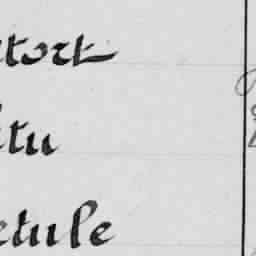 ttort
ttu
etule